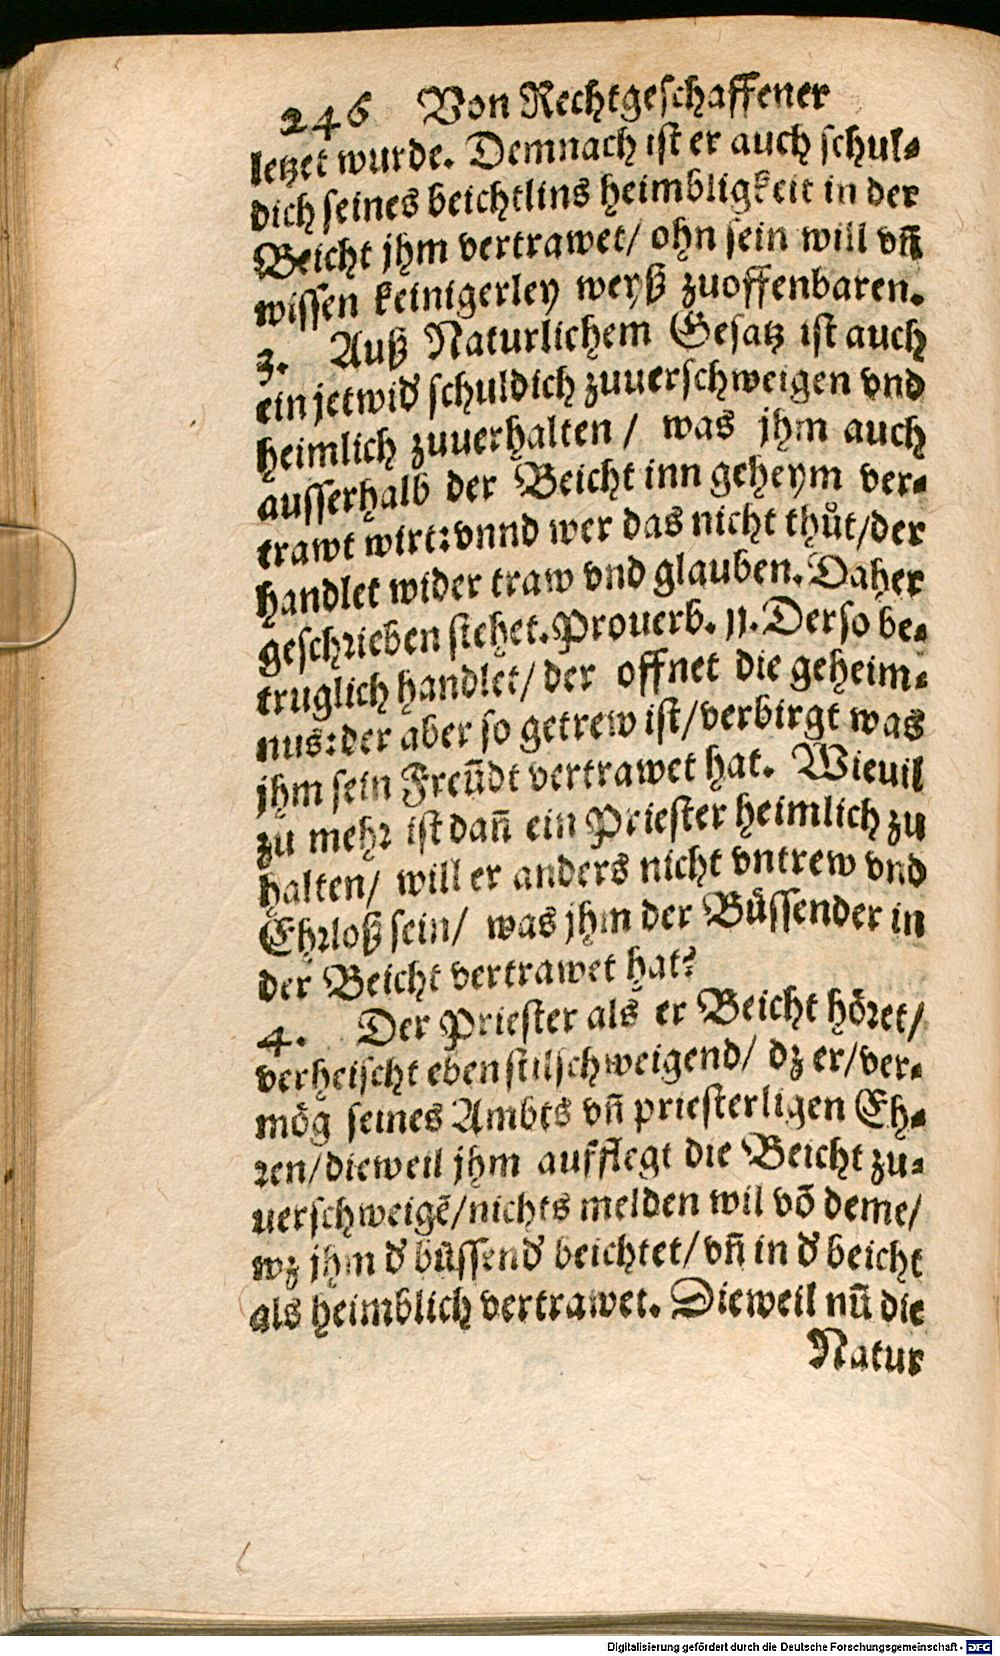 246 Von Rechtgeschaffener
letzet wurde. Demnach ist er auch schul-
dich seines beichtlins heimbligkeit in der
Beicht jhm vertrawet/ ohn sein will vñ
wissen keinigerley weyß zuoffenbaren.
3. Auß Naturlichem Gesatz ist auch
ein jetwid schuldich zuuerschweigen vnd
heimlich zuuerhalten / was jhm auch
ausserhalb der Beicht inn geheym ver-
trawt wirt: vnnd wer das nicht thůt/der
handlet wider traw vnd glauben. Daher
geschrieben stehet. Prouerb. 11. Der so be-
truglich handlet/ der offnet die geheim-
nus: der aber so getrew ist/verbirgt was
jhm sein Freũdt vertrawet hat. Wieuil
zu mehr ist dañ ein Priester heimlich zu
halten/ will er anders nicht vntrew vnd
Ehrloß sein/ was jhm der Büssender in
der Beicht vertrawet hat?
4. Der Priester als er Beicht höret/
verheischt eben stilschweigend/ dz er/ver-
mög seines Ambts vñ priesterligen Eh-
ren/dieweil jhm aufflegt die Beicht zu-
uerschweigẽ/nichts melden wil võ deme/
wz jhm d büssend beichtet/vñ in d beicht
als heimblich vertrawet. Dieweil nũ die
Natur
Digitalisierung gefördert durch die Deutsche Forschungsgemeinschaft - DFG